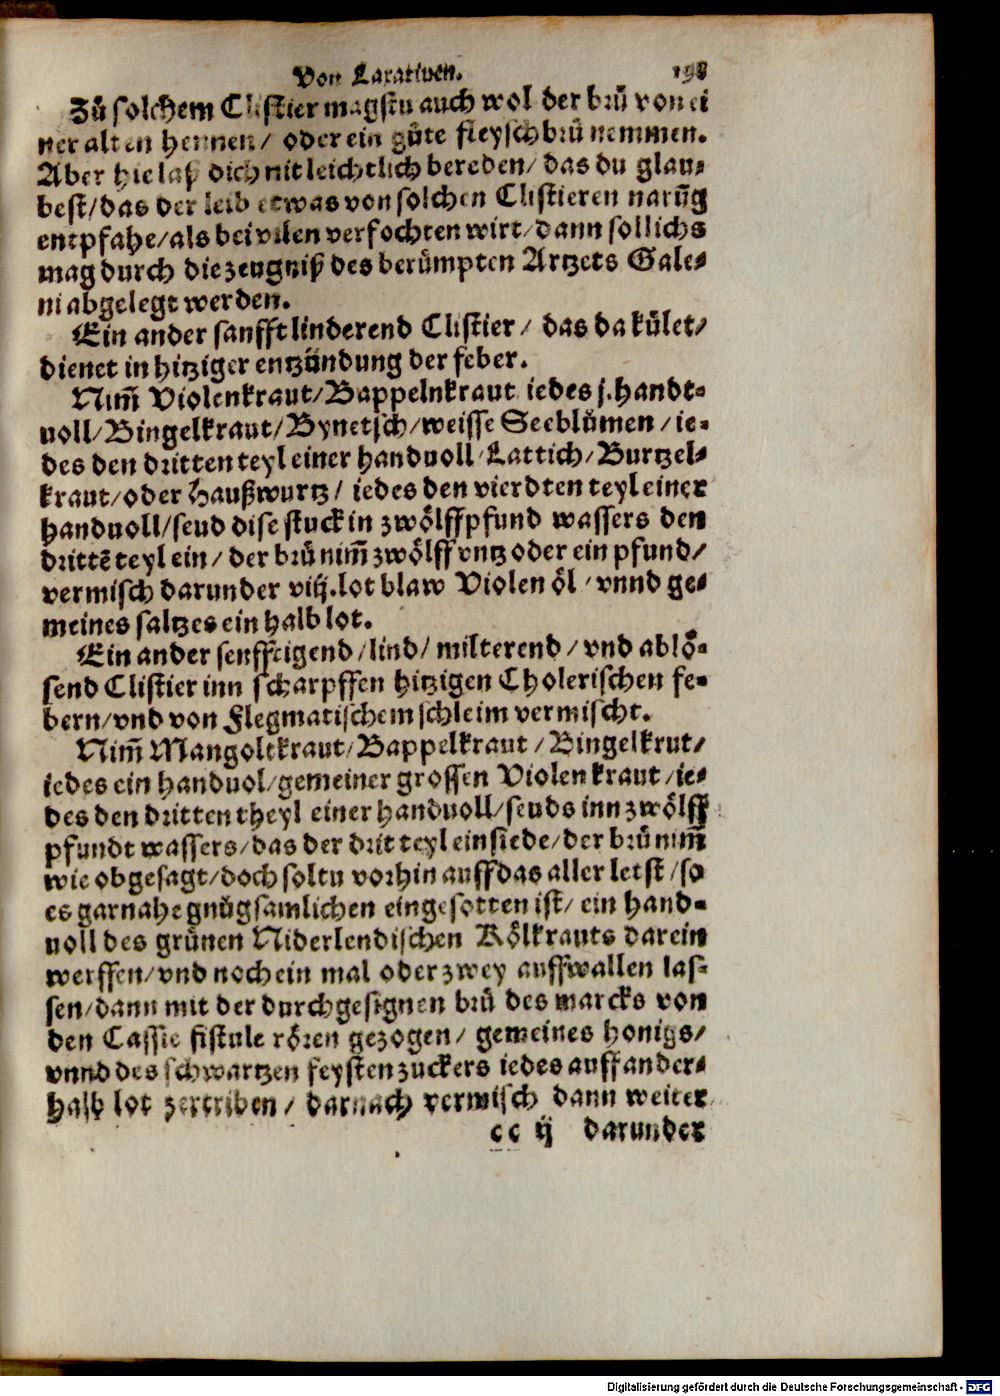 Von Laxatiuen. 198
Zů solchem Clistier magstu auch wol der brů von ei
ner alten hennen/ oder ein gůte fleyschbrů nemmen.
Aber hie laß dich nit leichtlich bereden/ das du glau-
best/ das der leib etwas von solchen Clistieren narũg
entpfahe/ als bei vilen verfochten wirt/ dann sollichs
mag durch die zeugniß des berůmpten Artzets Gale-
ni abgelegt werden.
Ein ander sanfft linderend Clistier/ das da kůlet/
dienet in hitziger entzündung der feber.
Nim̃ Violenkraut/ Bappelnkraut iedes j. handt-
uoll/ Bingelkraut/ Bynetsch/ weisse Seeblůmen/ ie-
des den dritten teyl einer handuoll/ Lattich/ Burtzel-
kraut/ oder Haußwurtz/ iedes den vierdten teyl einer
handuoll/ seud dise stuck in zwölff pfund wassers den
drittẽ teyl ein/ der brů nim̃ zwölff vntz oder ein pfund/
vermisch darunder viij. lot blaw Violen öl/ vnnd ge-
meines saltzes ein halb lot.
Ein ander senfftigend/ lind/ milterend/ vnd ablö-
send Clistier inn scharpffen hitzigen Cholerischen fe-
bern/ vnd von Flegmatischem schleim vermischt.
Nim̃ Mangoltkraut/ Bappelkraut/ Bingelkrut/
iedes ein handuol/ gemeiner grossen Violen kraut/ ie-
des den dritten theyl einer handuoll/ seuds inn zwölff
pfundt wassers/ das der drit teyl einsiede/ der brů nim̃
wie obgesagt/ doch soltu vorhin auff das aller letst/ so
es gar nahe gnůgsamlichen eingesotten ist/ ein hand-
uoll des grünen Niderlendischen Kölkrauts darein
werffen/ vnd noch ein mal oder zwey auffwallen las-
sen/ dann mit der durchgesignen brů des marcks von
den Cassie fistule rören gezogen/ gemeines honigs/
vnnd des schwartzen feysten zuckers iedes auff ander-
halb lot zertriben/ darnach vermisch dann weiter
cc ij darunder
Digitalisierung gefördert durch die Deutsche Forschungsgemeinschaft - DFG